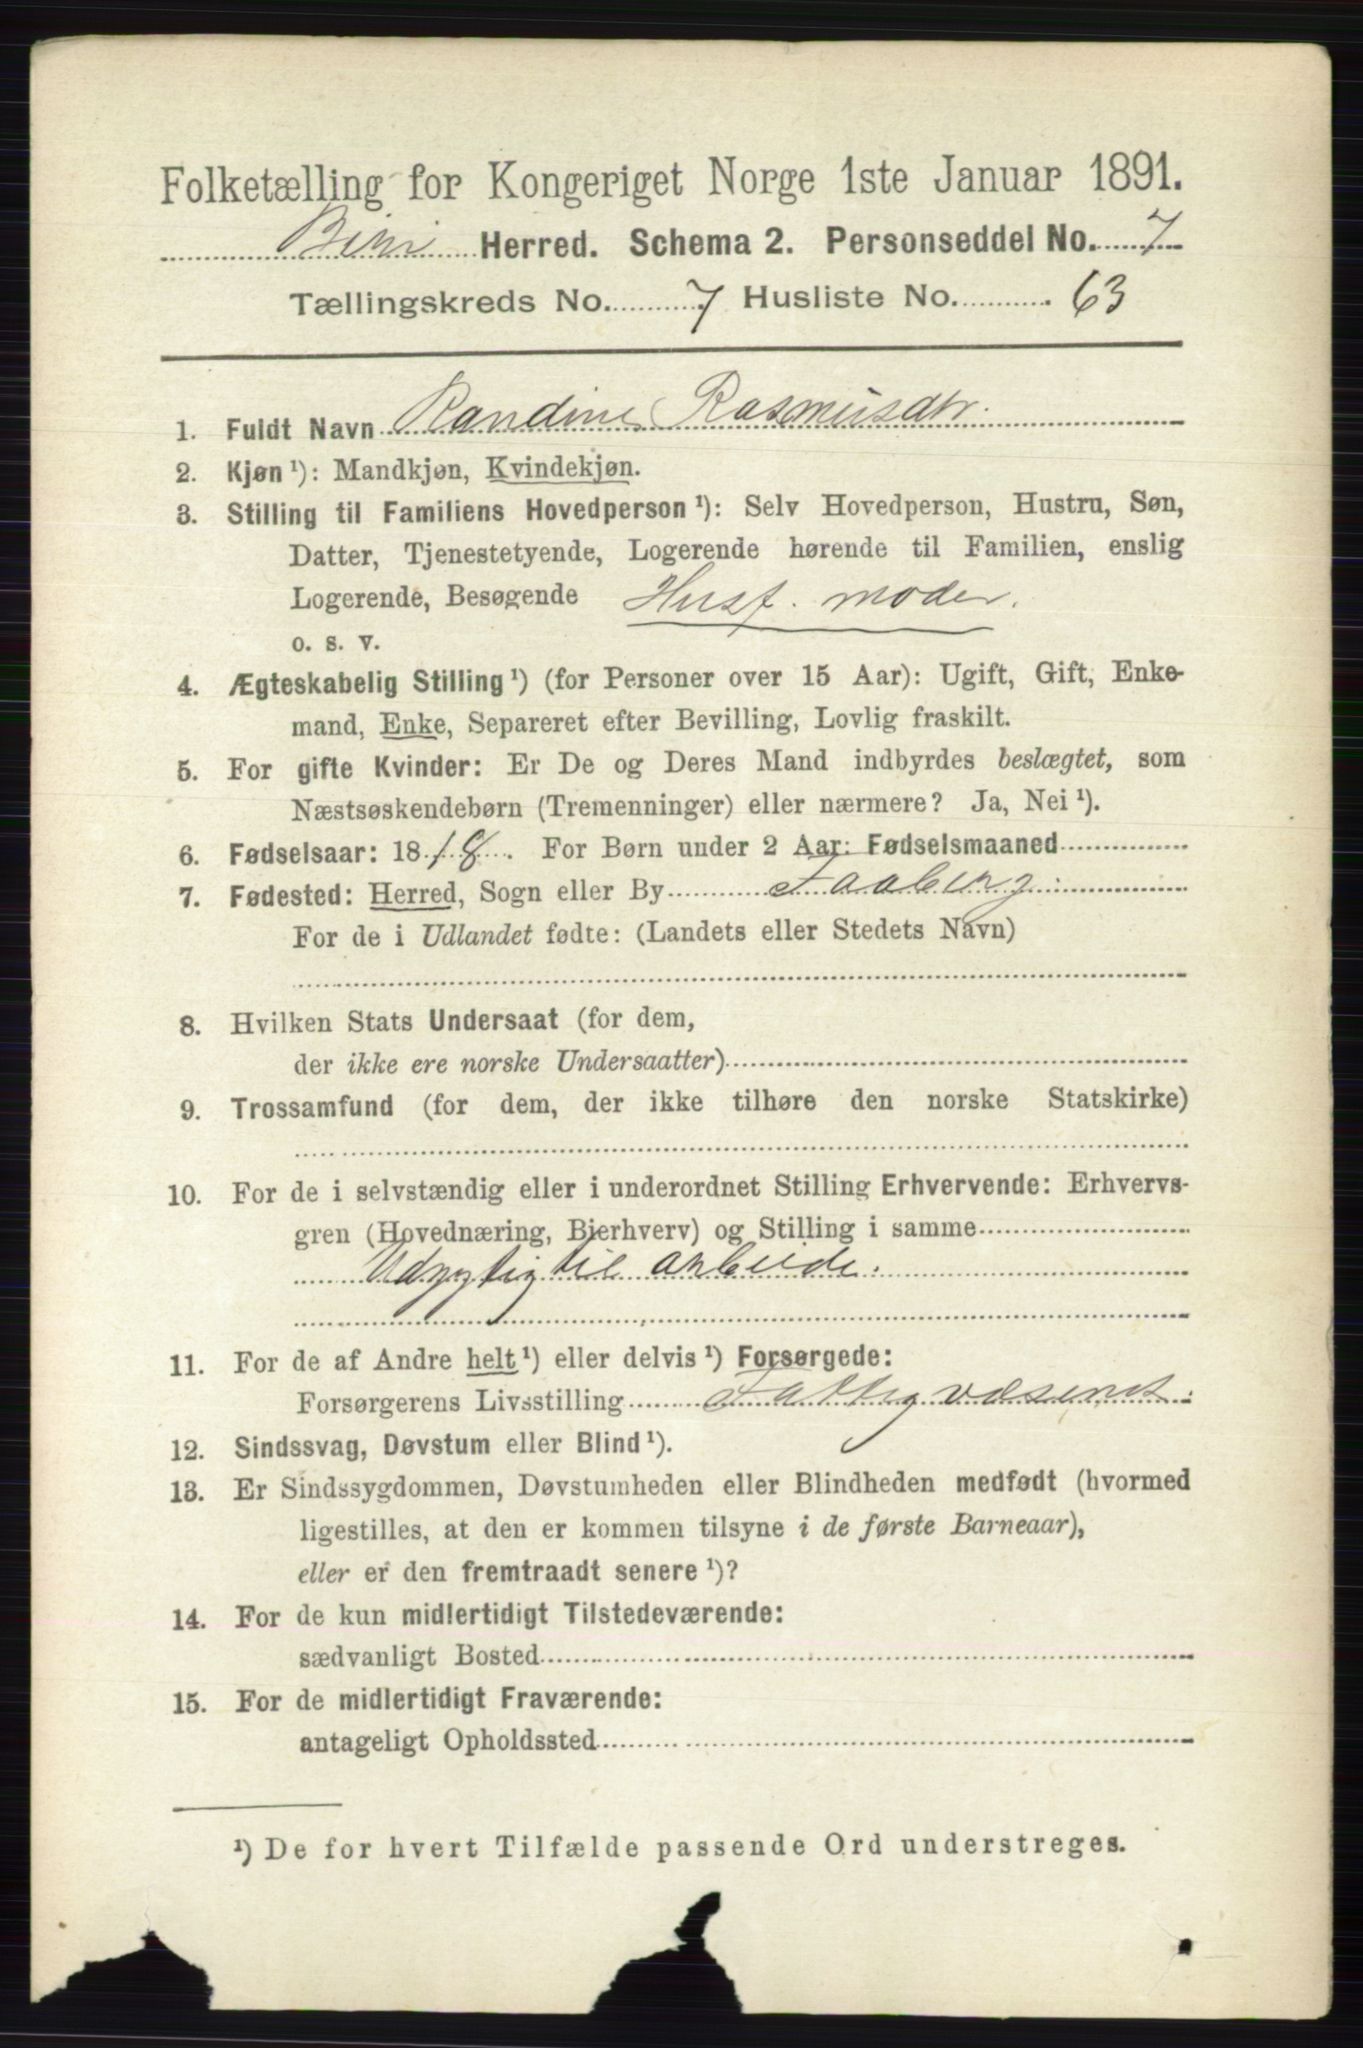 Folketælling for Kongeriget Norge 1ste Januar 1891.
Biri Herred. Schema 2. Personseddel No. 7
Tællingskreds No. 7 Husliste No. 63
1. Fuldt Navn Randine Rasmusdtr.
2. Kjøn ¹): Mandkjøn, Kvindekjøn.
3. Stilling til Familiens Hovedperson ¹): Selv Hovedperson, Hustru, Søn,
Datter, Tjenestetyende, Logerende hørende til Familien, enslig
Logerende, Besøgende Husf. moder.
o. s. v.
4. Ægteskabelig Stilling ¹) (for Personer over 15 Aar): Ugift, Gift, Enke-
mand, Enke, Separeret efter Bevilling, Lovlig fraskilt.
5. For gifte Kvinder: Er De og Deres Mand indbyrdes beslægtet, som
Næstsøskendebørn (Tremenninger) eller nærmere? Ja, Nei ¹).
6. Fødselsaar: 1818. For Børn under 2 Aar: Fødselsmaaned
7. Fødested: Herred, Sogn eller By Faaberg.
For de i Udlandet fødte: (Landets eller Stedets Navn)
8. Hvilken Stats Undersaat (for dem,
der ikke ere norske Undersaatter)
9. Trossamfund (for dem, der ikke tilhøre den norske Statskirke)
10. For de i selvstændig eller i underordnet Stilling Erhvervende: Erhvervs-
gren (Hovednæring, Bierhverv) og Stilling i samme
Udygtig til arbeide.
11. For de af Andre helt ¹) eller delvis ¹) Forsørgede:
Forsørgerens Livsstilling Fattigvæsenet
12. Sindssvag, Døvstum eller Blind ¹).
13. Er Sindssygdommen, Døvstumheden eller Blindheden medfødt (hvormed
ligestilles, at den er kommen tilsyne i de første Barneaar),
eller er den fremtraadt senere ¹)?
14. For de kun midlertidigt Tilstedeværende:
sædvanligt Bosted
15. For de midlertidigt Fraværende:
antageligt Opholdssted
¹) De for hvert Tilfælde passende Ord understreges.